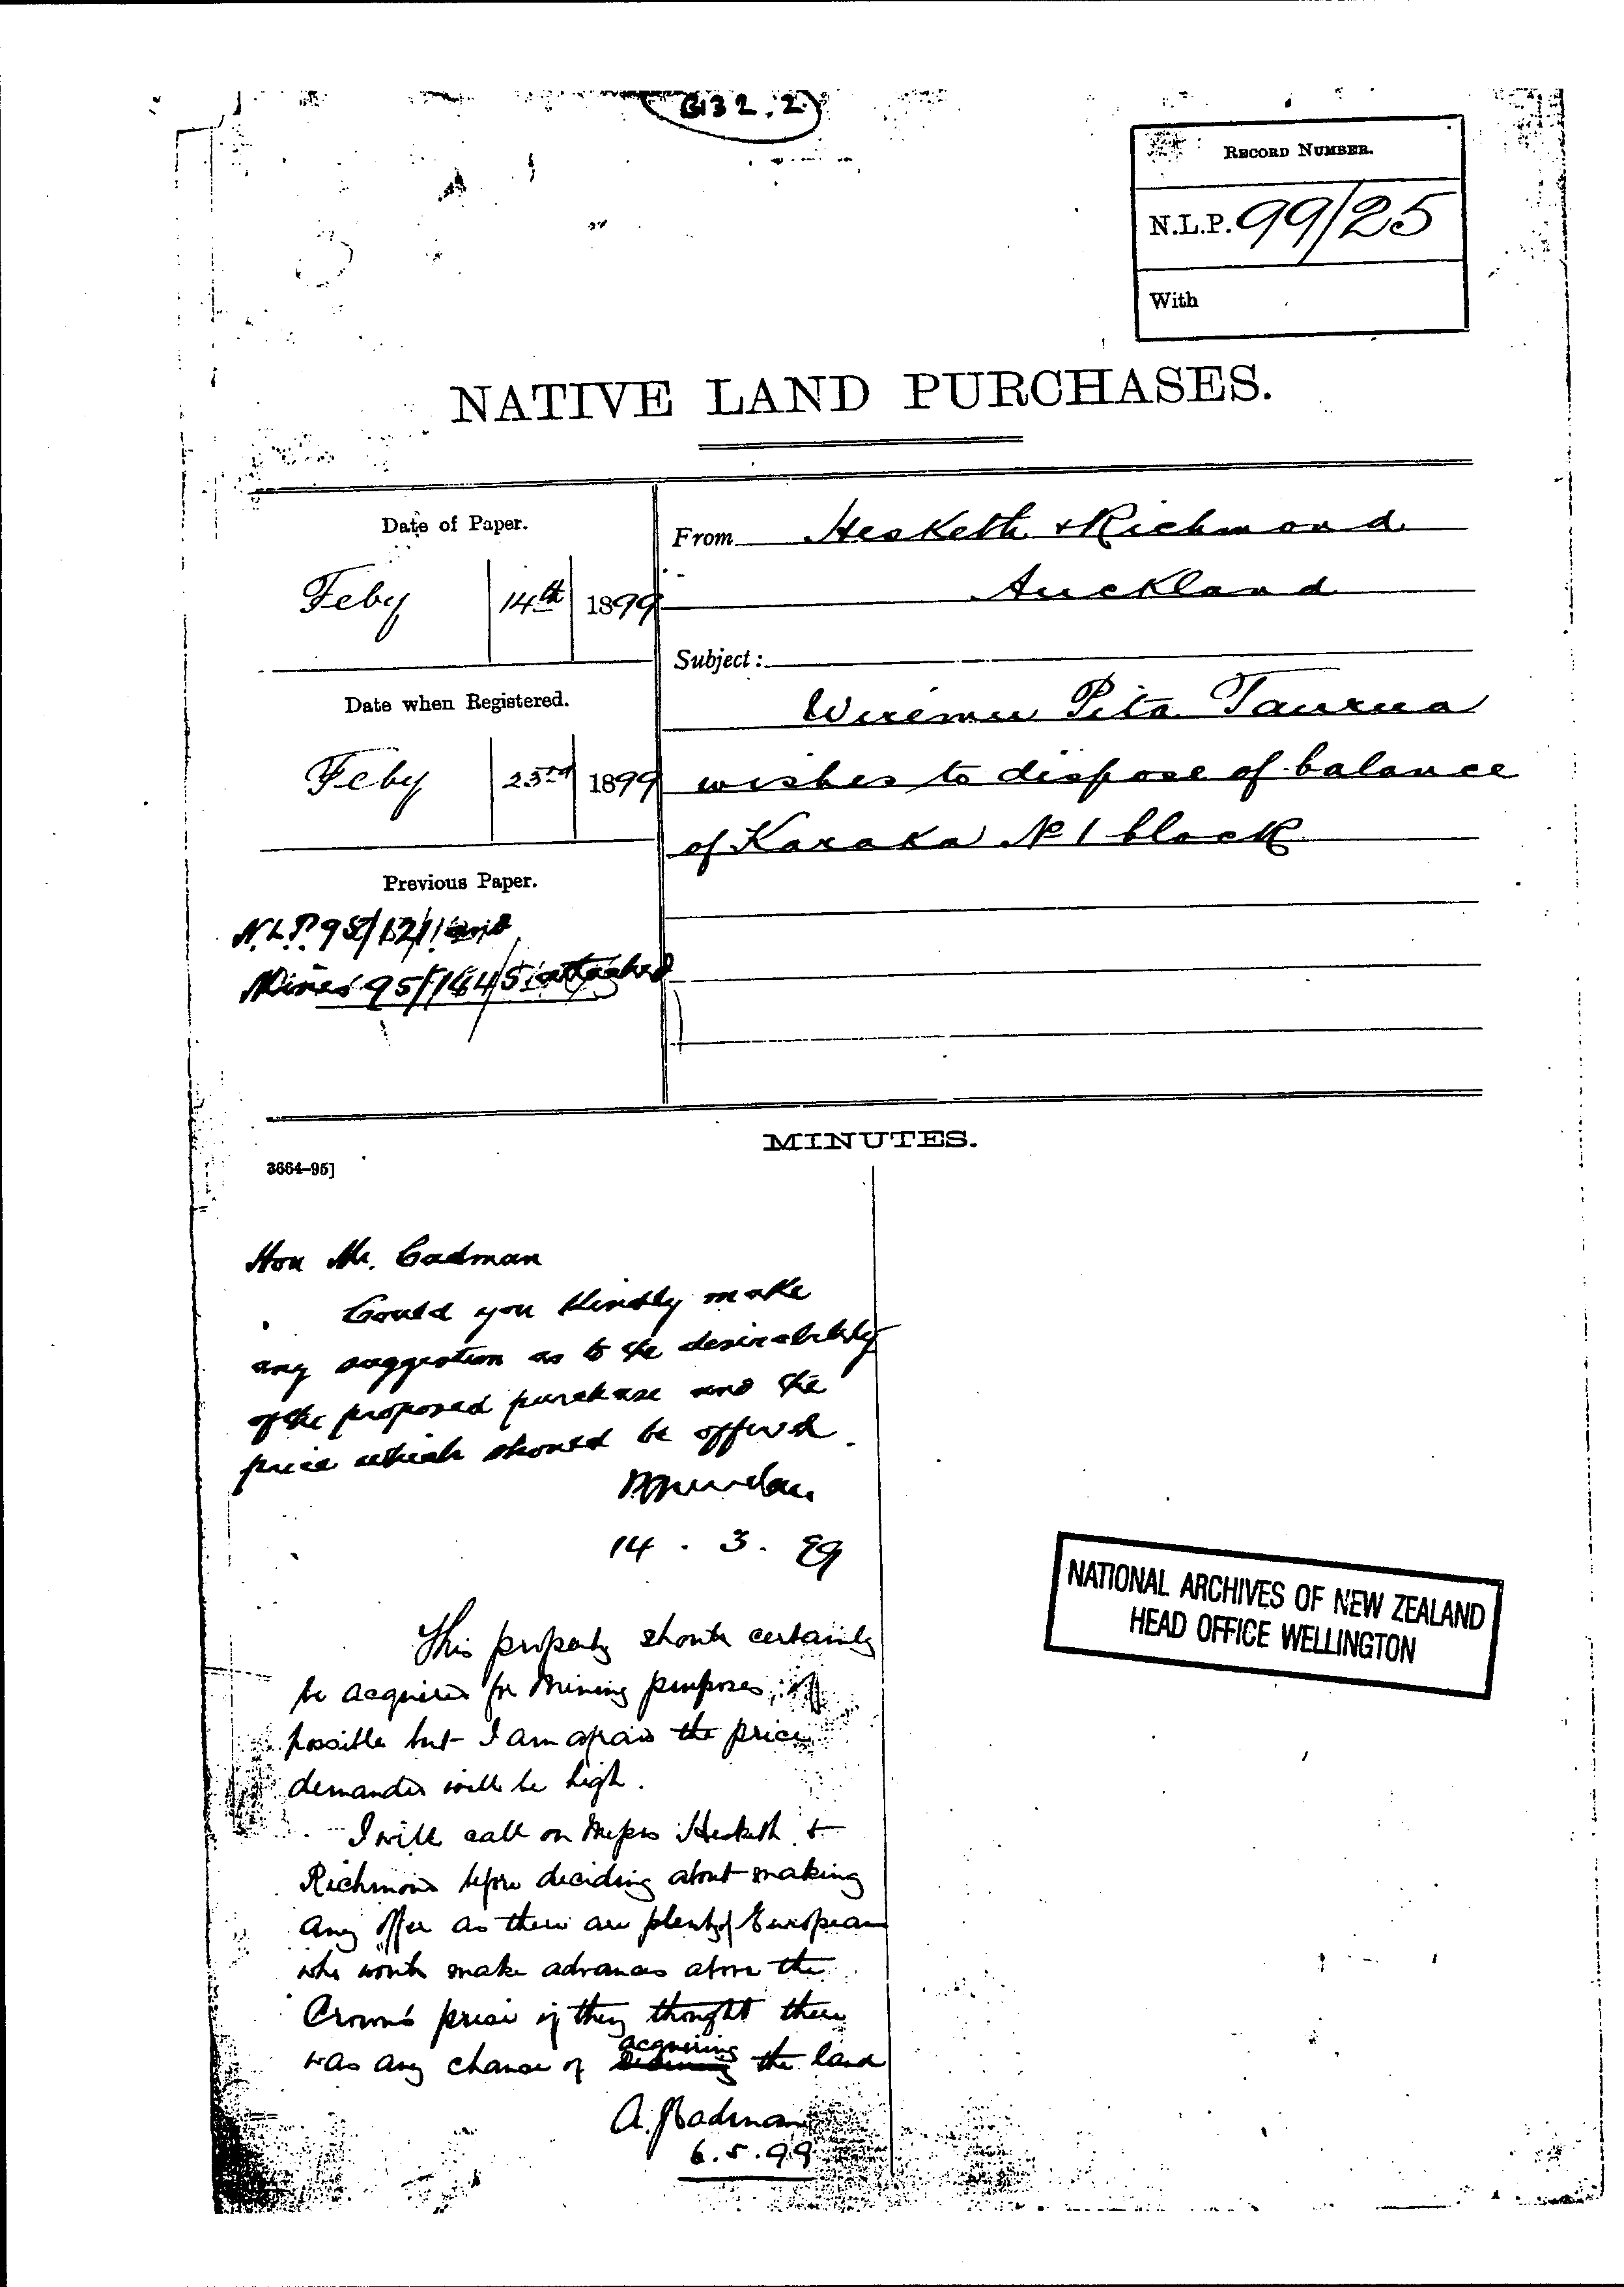 G132.2
RECORD NUMBER.
N.L.P. 99/25
With
NATIVE LAND PURCHASES.
Date of Paper.
Feby 14th 1899
From Hesketh & Richmond
Auckland
Subject:
Wiremu Pita Taurua
wishes to dispose of balance
of Karaka No 1 block
Date when Registered.
Feby 23rd 1899
Previous Paper.
N.L.P. and
Mines 95/ attached
MINUTES.
3664–95]
Hon Mr. Cadman
Could you kindly make
any suggestion as to the desirability
of the proposed purchase and the
price which should be offered.
14 . 3 . 99
This property should certainly
be acquired for Mining purposes if
possible but I am afraid the price
demanded will be high.
I will call on Messrs Hesketh &
Richmond before deciding about making
any offer as there are plenty of European
who would make advances above the
Crown's price if they thought there
was any chance of acquiring the land
A. J. Cadman
6.5.99
NATIONAL ARCHIVES OF NEW ZEALAND
HEAD OFFICE WELLINGTON